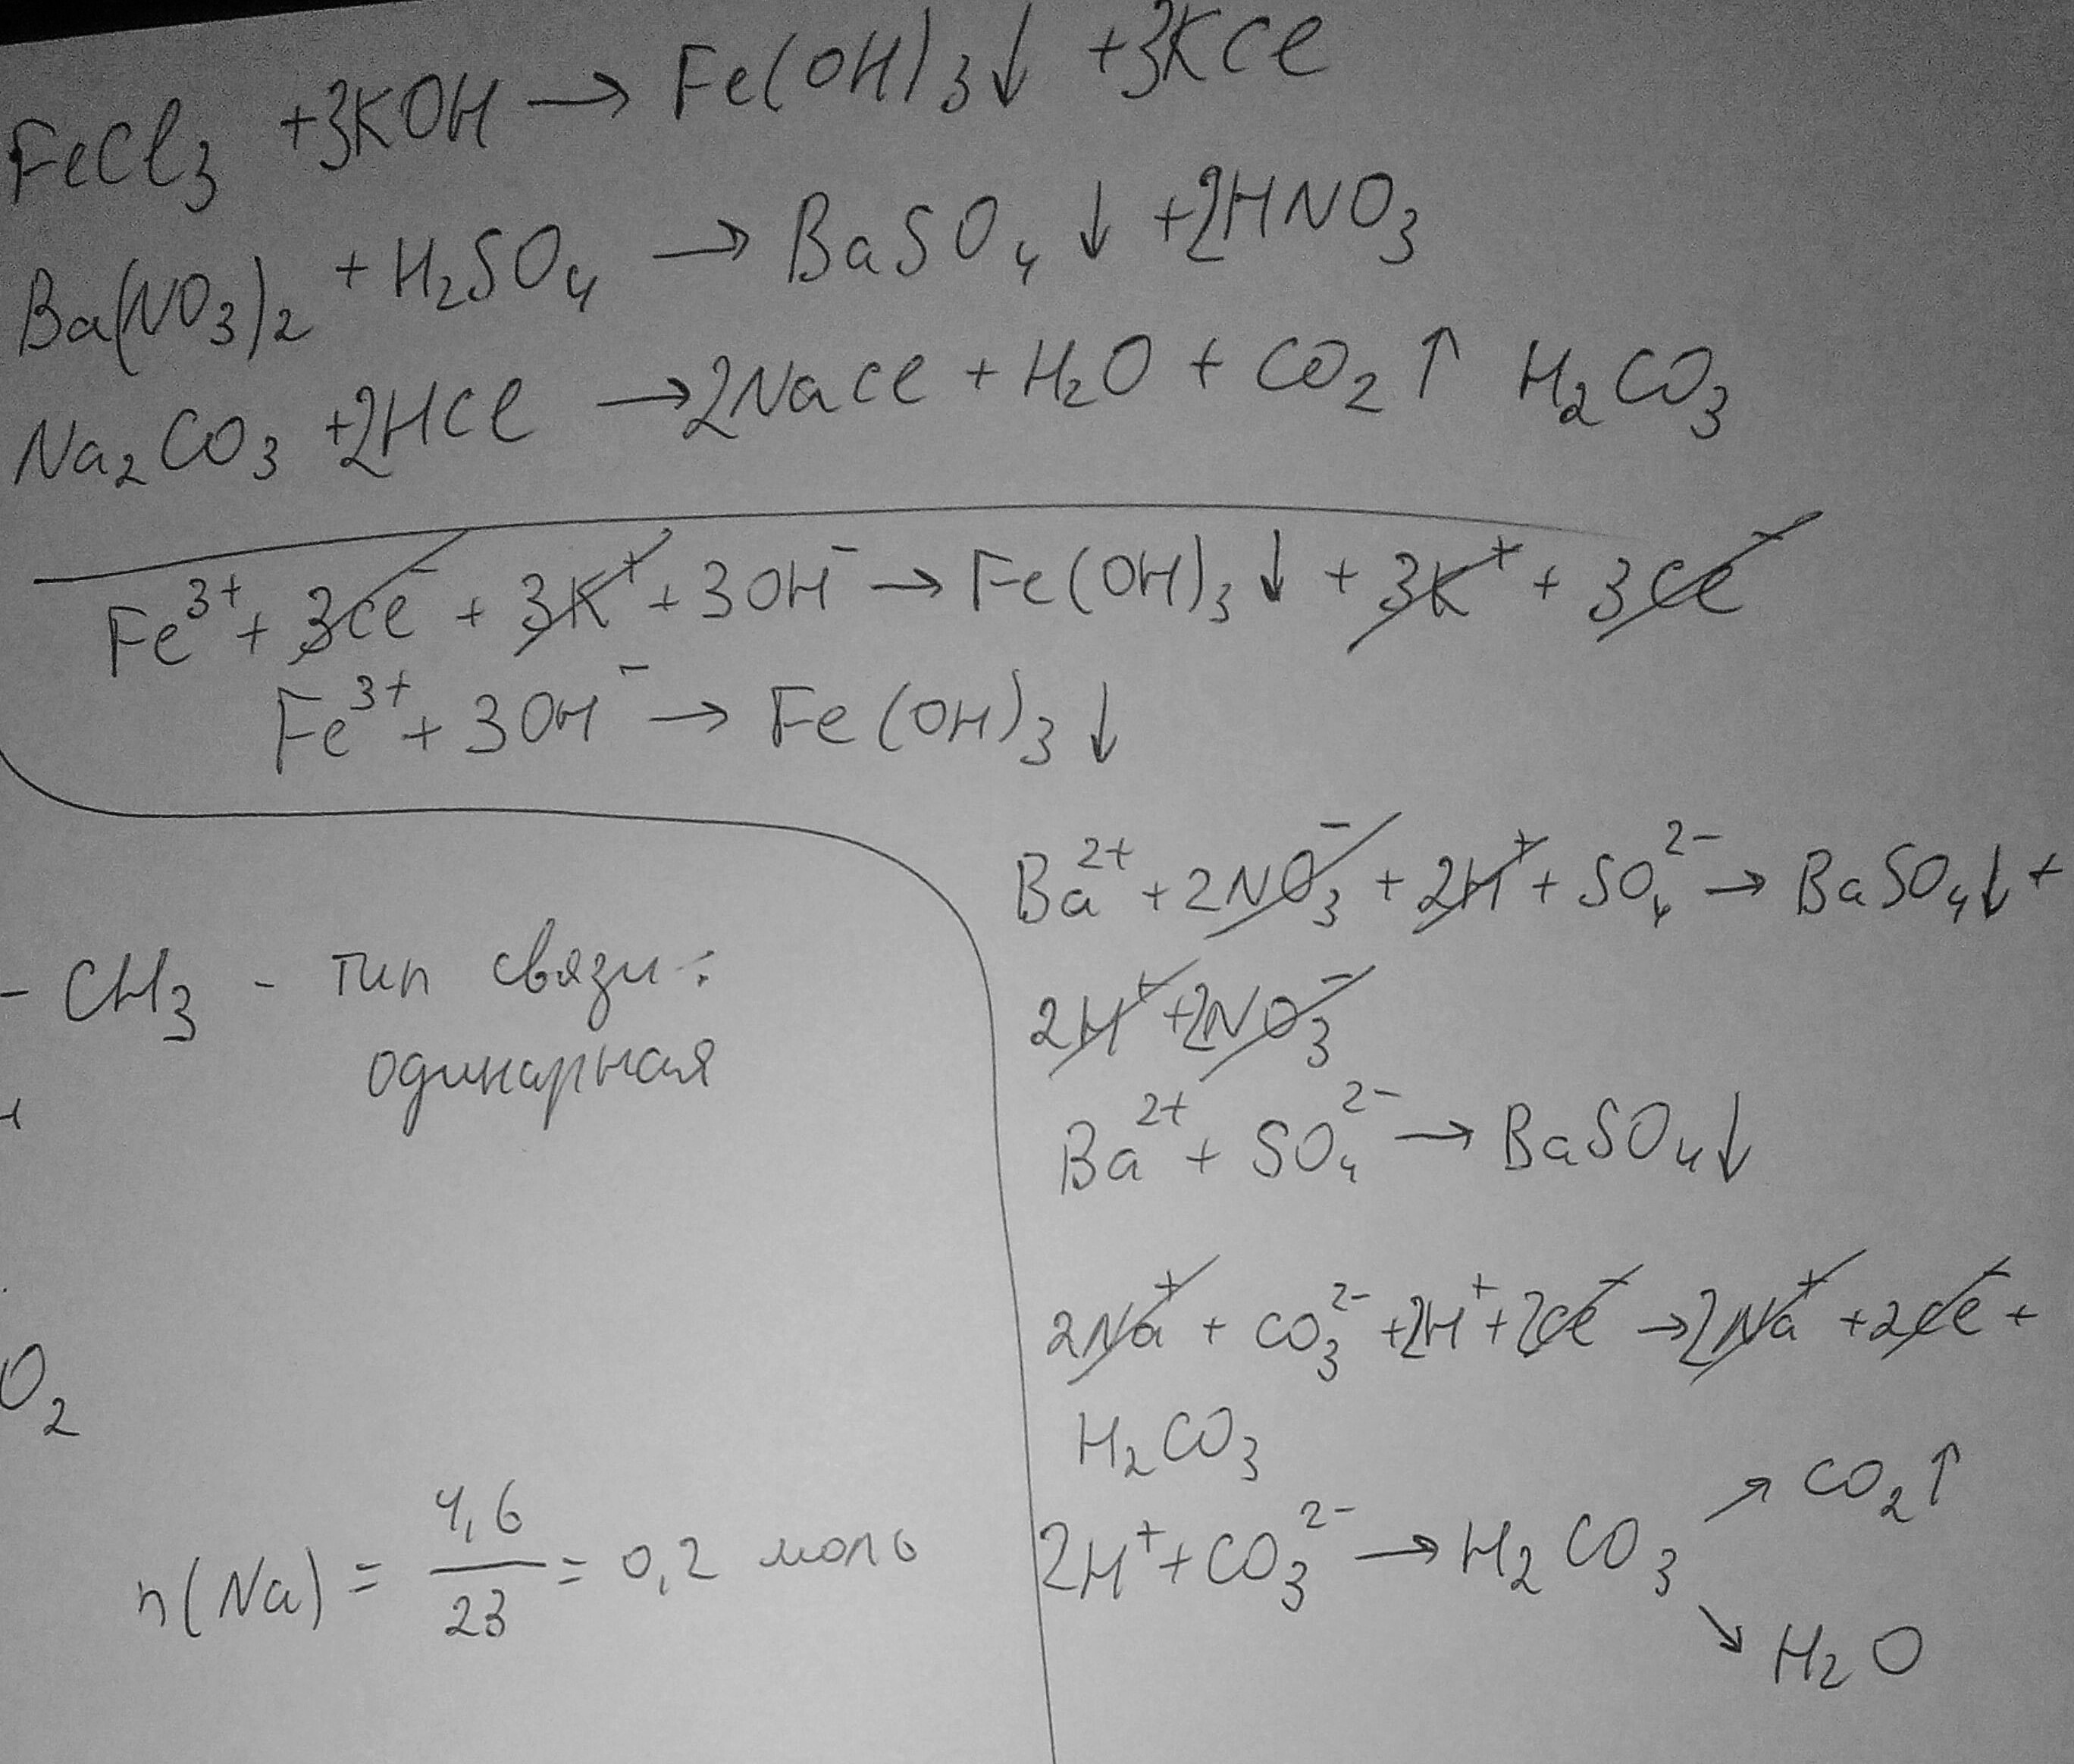 FeCl₃ + 3KOH → Fe(OH)₃↓ + 3KCl
Ba(NO₃)₂ + H₂SO₄ → BaSO₄↓ + 2HNO₃
Na₂CO₃ + 2HCl → 2NaCl + H₂O + CO₂↑ H₂CO₃
Fe³⁺ + 3Cl⁻ + 3K⁺ + 3OH⁻ → Fe(OH)₃↓ + 3K⁺ + 3Cl⁻
Fe³⁺ + 3OH⁻ → Fe(OH)₃↓
- CH₃ - тип связи:
одинарная
O₂
n(Na) = 4,6/23 = 0,2 моль
Ba²⁺ + 2NO₃⁻ + 2H⁺ + SO₄²⁻ → BaSO₄↓ +
2H⁺ + 2NO₃⁻
Ba²⁺ + SO₄²⁻ → BaSO₄↓
2Na⁺ + CO₃²⁻ + 2H⁺ + 2Cl⁻ → 2Na⁺ + 2Cl⁻ +
H₂CO₃
2H⁺ + CO₃²⁻ → H₂CO₃ ↗ CO₂↑
↘ H₂O